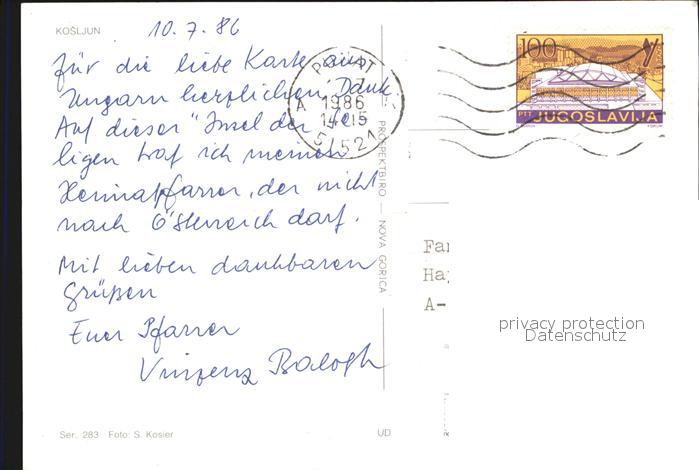 KOŠLJUN
10.7.86
für die liebe Karte aus
Ungarn herzlichen Dank.
Auf dieser "Insel der Se-
ligen traf ich meinen
Heimatpfarrer, der nicht
nach Österreich darf.
Mit lieben dankbaren
Grüßen
Euer Pfarrer
Vinzenz Balogh
Ser. 283 Foto: S. Kosier
PROSPEKTBIRO — NOVA GORICA
UD
PUNAT
7
A 1986
14-15
51521
100
PTT JUGOSLAVIJA
Fa
Ha
A-
privacy protection
Datenschutz